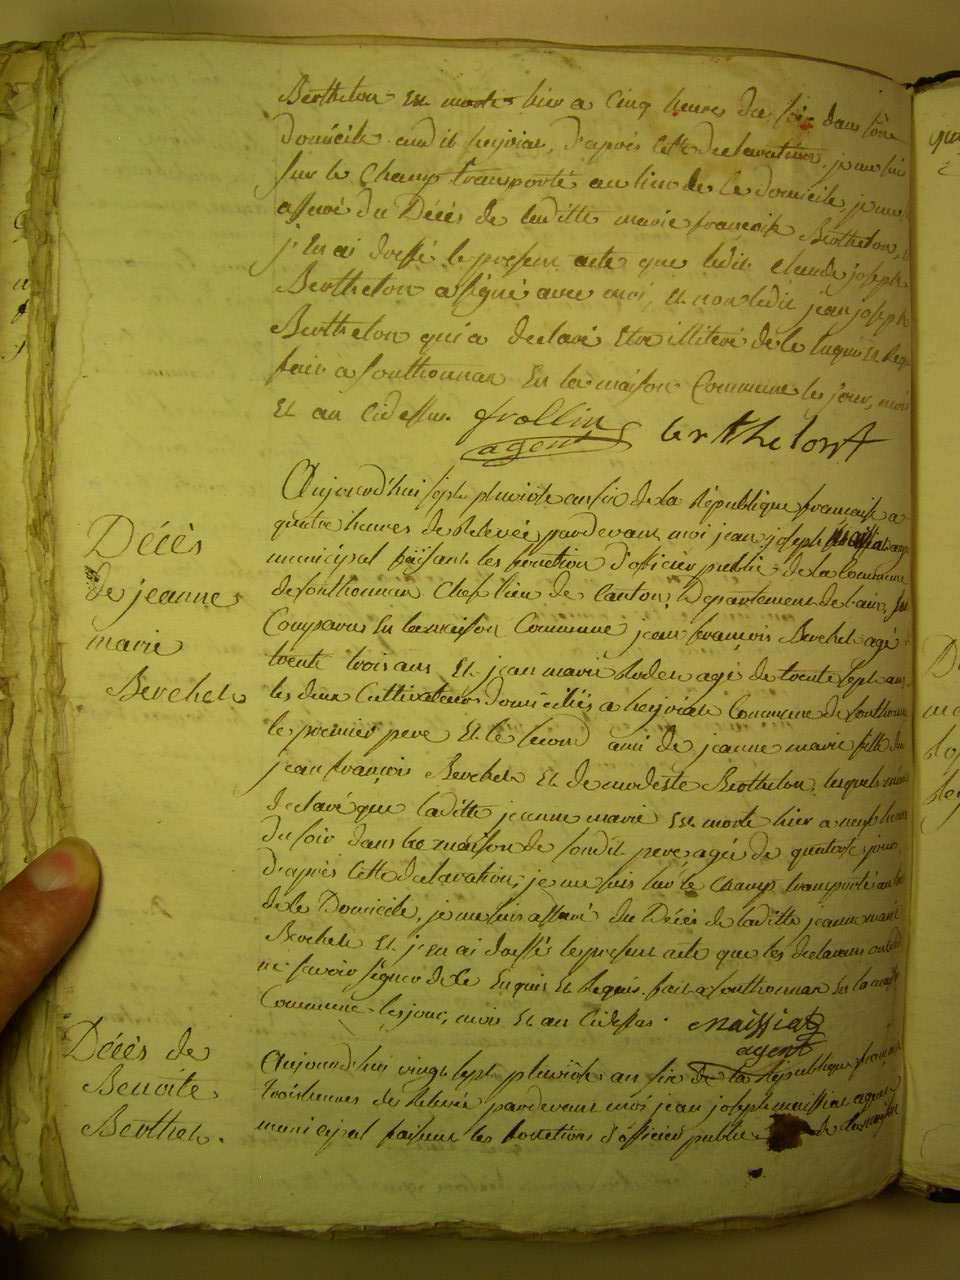 Berthelon Est morte hier a Cinq heures du soir dans son
domicile audit heyriat, d'après Cette declaration, je me suis
sur le Champ transporté au lieu de le domicile, je me
assuré du Décès de laditte marie françoise Berthelon,
j'En ai dressé le present acte que ledit Claude joseph
Berthelon a signé avec moi, Et non ledit jean joseph
Berthelon qui a declaré Etre illiteré de le Enquis Et Req
fait a Sonthonnax En la maison Commune les jour, mois
Et an Cidessus. frollin berthelon
agent
Aujourd'hui sept pluviose an six de la République francaise a
quatre heures de Relevée pardevant moi jean joseph Maissiat agent
municipal faisant les fonction d'officier public de la Commune
de Sonthonnax Chef lieu de Canton, Departement de l'ain, Sont
Comparus En la maison Commune jean françois Berchet agé
trente trois ans Et jean marie Rodet agé de trente sept ans
les deux Cultivateurs domiciliés a heyriat Commune de Sonthonnax
le premier pere Et le second ami de jeanne marie fille du
jean françois Berchet Et de modeste Berthelon, lesquels m'ont
declaré que laditte jeanne marie Est morte hier a neuf heures
du soir dans la maison de sondit pere agée de quatorze jours
d'après Cette declaration, je me suis sur le Champ transporté au lieu
de le Domicile, je me suis assuré du Décès de laditte jeanne marie
Berchet Et j'En ai dressé le present acte que les declarans ont dit
ne savoir signer de le Enquis Et Requis. fait a Sonthonnax En la maison
Commune les jour, mois Et an Cidessus. Maissiat
agent
Décès
de jeanne
marie
Berchet
Aujourd'hui vingt sept pluviose an six de la République française
trois heures de Relevée pardevant moi jean joseph maissiat agent
municipal faisant les fonctions d'officier public de la
Décès de
Benoite
Berthet.